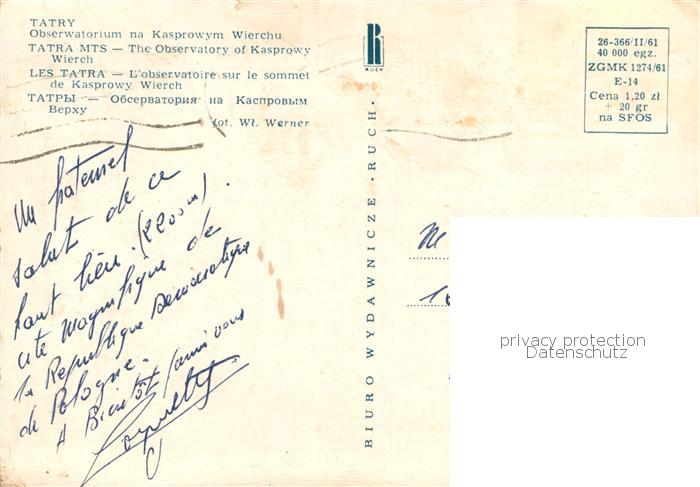 TATRY
Obserwatorium na Kasprowym Wierchu
TATRA MTS — The Observatory of Kasprowy
Wierch
LES TATRA — L'observatoire sur le sommet
de Kasprowy Wierch
ТАТРЫ — Обсерватория на Каспровым
Верху
fot. Wł. Werner
R
RUCH
26-366/II/61
40 000 egz.
ZGMK 1274/61
E-14
Cena 1,20 zł
+ 20 gr
na SFOS
BIURO WYDAWNICZE · RUCH ·
Un fraternel
salut de ce
haut lieu. (2200 m).
cité magnifique de
la Republique Démocratique
de Pologne.
A Bientôt parmi vous
M
privacy protection
Datenschutz